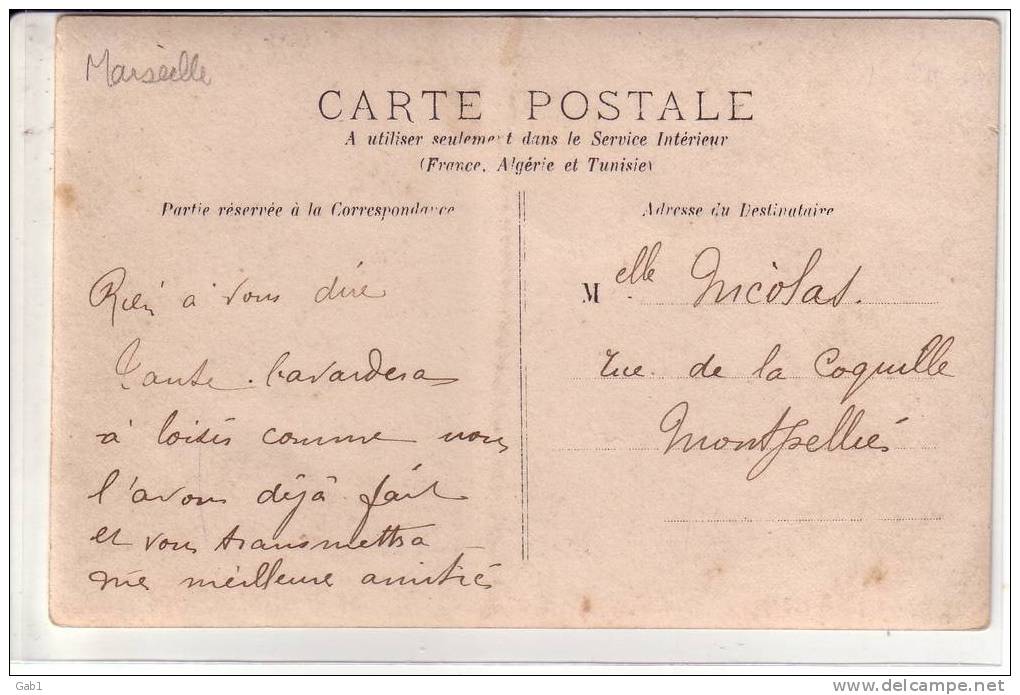 Marseille
CARTE POSTALE
A utiliser seulement dans le Service Intérieur
(France, Algérie et Tunisie)
Partie réservée à la Correspondance
Adresse du Destinataire
Rien à vous dire
Tante bavardera
à loisir comme nous
l'avons déjà fait
et vous transmettra
mes meilleures amitiés
Melle Nicolas.
rue de la Coquille
Montpellier
Gab1
delcampe.net